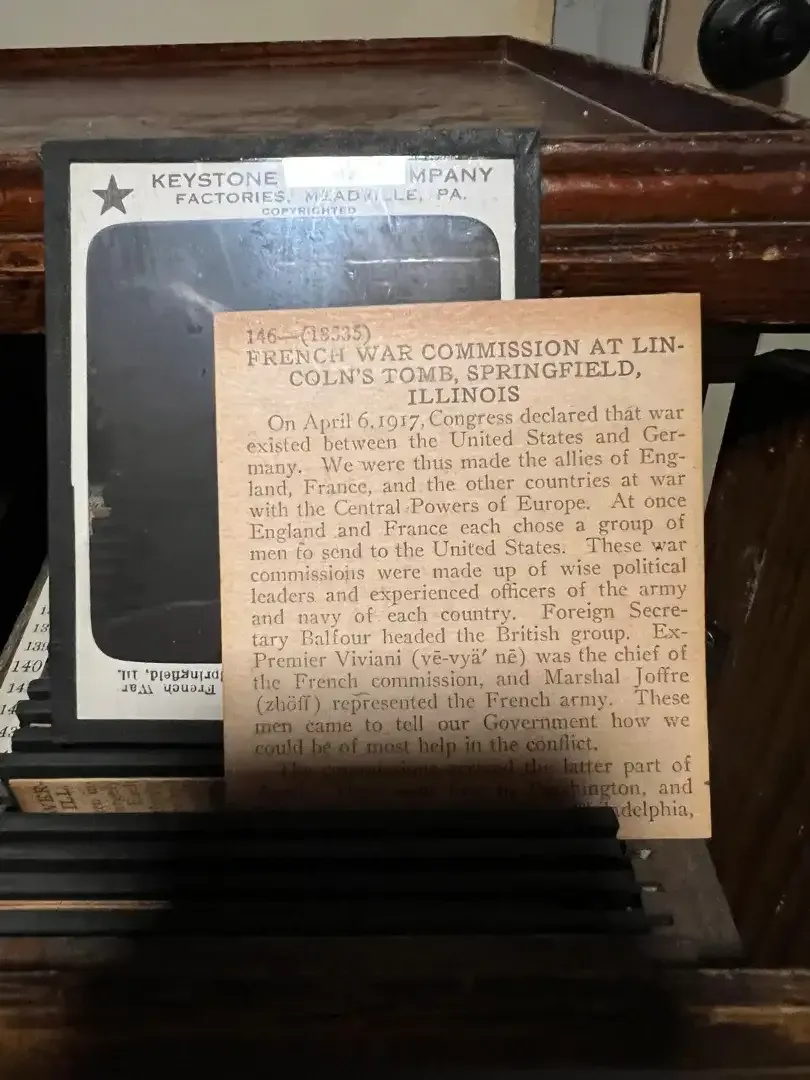 KEYSTONE MPANY
FACTORIES, MEADVILLE, PA.
COPYRIGHTED
146—(18535)
FRENCH WAR COMMISSION AT LIN-
COLN'S TOMB, SPRINGFIELD,
ILLINOIS
On April 6, 1917, Congress declared that war
existed between the United States and Ger-
many. We were thus made the allies of Eng-
land, France, and the other countries at war
with the Central Powers of Europe. At once
England and France each chose a group of
men to send to the United States. These war
commissions were made up of wise political
leaders and experienced officers of the army
and navy of each country. Foreign Secre-
tary Balfour headed the British group. Ex-
Premier Viviani (vē-vyä′ nē) was the chief of
the French commission, and Marshal Joffre
(zhöff) represented the French army. These
men came to tell our Government how we
could be of most help in the conflict.
The commissions the latter part of
and
French War
Springfield, Ill.
139
140